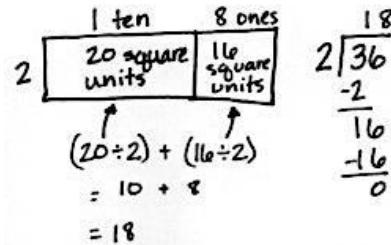 1 ten 8 ones
2
20 square units
16 square units
(20÷2) + (16÷2)
= 10 + 8
= 18
18
2 36
-2
16
-16
0